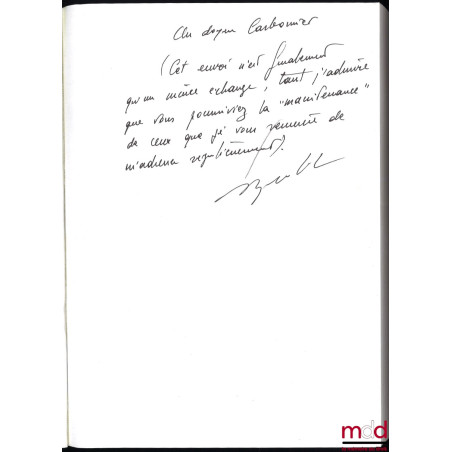 Au doyen Carbonnier
(Cet envoi n'est finalement
qu'un mince échange, tant j'admire
que vous poursuiviez la "maintenance"
de ceux que je vous remercie de
m'adresser régulièrement).
mdd